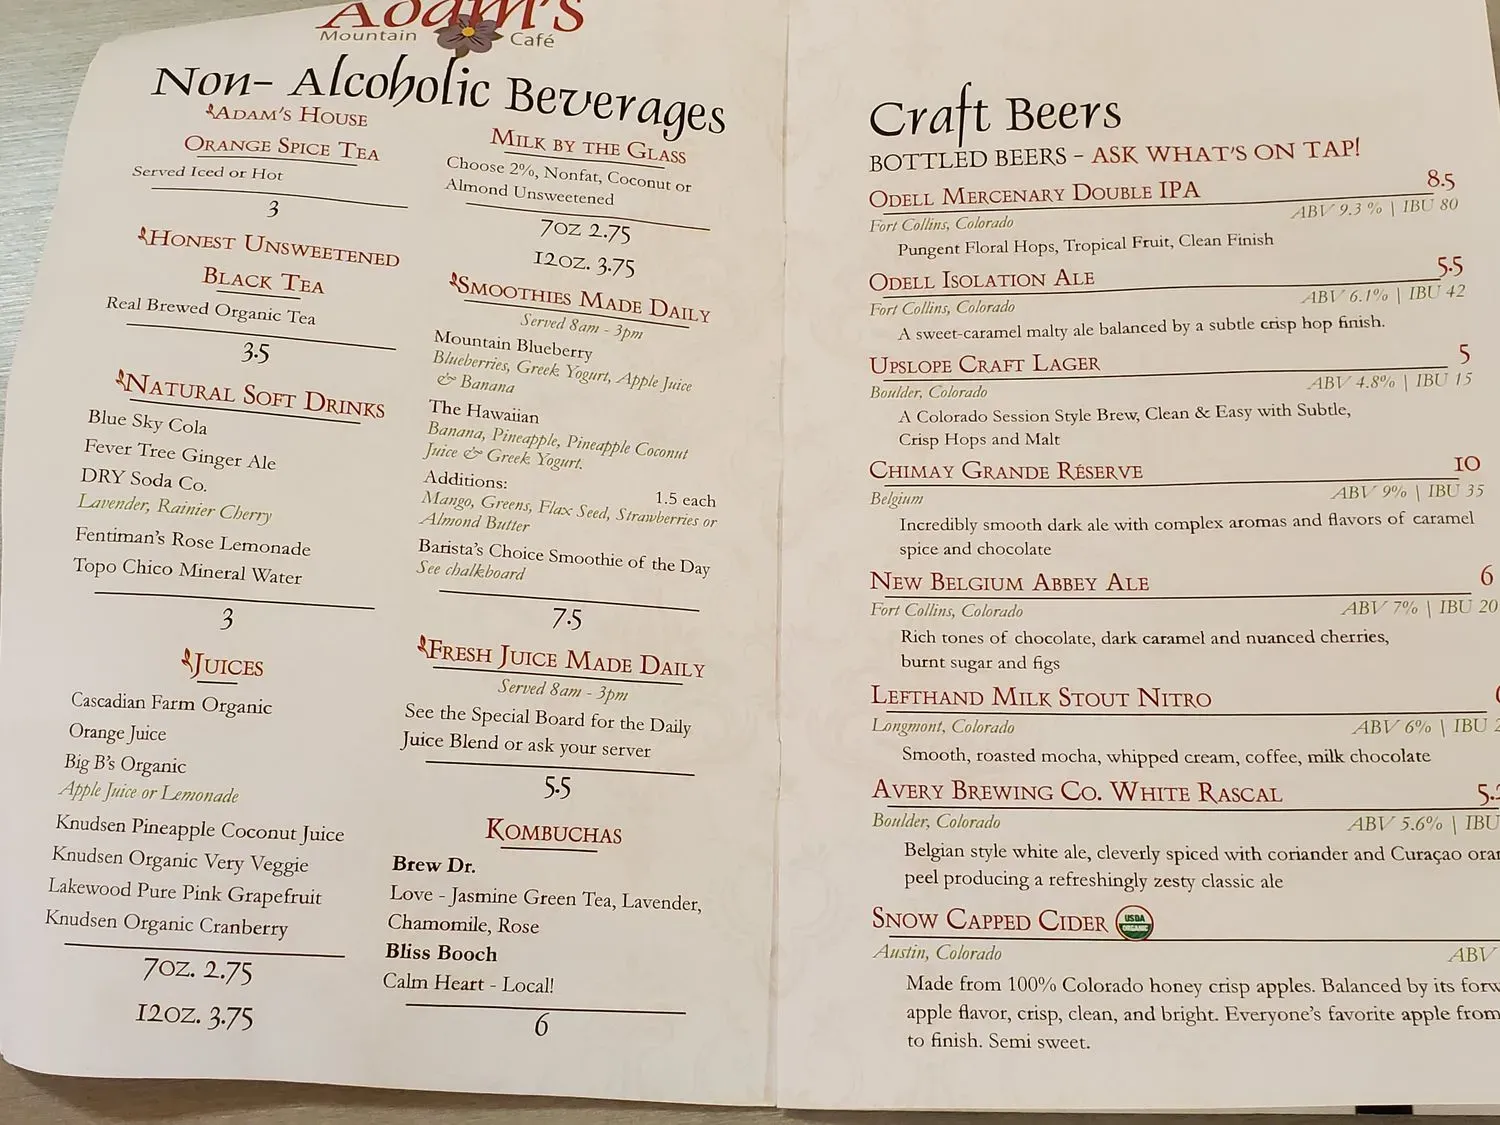 Adam's
Mountain Café
Non- Alcoholic Beverages
Adam's House
Orange Spice Tea
Served Iced or Hot
3
Honest Unsweetened
Black Tea
Real Brewed Organic Tea
3.5
Natural Soft Drinks
Blue Sky Cola
Fever Tree Ginger Ale
DRY Soda Co.
Lavender, Rainier Cherry
Fentiman's Rose Lemonade
Topo Chico Mineral Water
3
Juices
Cascadian Farm Organic
Orange Juice
Big B's Organic
Apple Juice or Lemonade
Knudsen Pineapple Coconut Juice
Knudsen Organic Very Veggie
Lakewood Pure Pink Grapefruit
Knudsen Organic Cranberry
7oz. 2.75
12oz. 3.75
Milk by the Glass
Choose 2%, Nonfat, Coconut or
Almond Unsweetened
7oz 2.75
12oz. 3.75
Smoothies Made Daily
Served 8am - 3pm
Mountain Blueberry
Blueberries, Greek Yogurt, Apple Juice
& Banana
The Hawaiian
Banana, Pineapple, Pineapple Coconut
Juice & Greek Yogurt.
Additions: 1.5 each
Mango, Greens, Flax Seed, Strawberries or
Almond Butter
Barista's Choice Smoothie of the Day
See chalkboard
7.5
Fresh Juice Made Daily
Served 8am - 3pm
See the Special Board for the Daily
Juice Blend or ask your server
5.5
Kombuchas
Brew Dr.
Love - Jasmine Green Tea, Lavender,
Chamomile, Rose
Bliss Booch
Calm Heart - Local!
6
Craft Beers
BOTTLED BEERS - ASK WHAT'S ON TAP!
Odell Mercenary Double IPA 8.5
Fort Collins, Colorado ABV 9.3 % | IBU 80
Pungent Floral Hops, Tropical Fruit, Clean Finish
Odell Isolation Ale 5.5
Fort Collins, Colorado ABV 6.1% | IBU 42
A sweet-caramel malty ale balanced by a subtle crisp hop finish.
Upslope Craft Lager 5
Boulder, Colorado ABV 4.8% | IBU 15
A Colorado Session Style Brew, Clean & Easy with Subtle,
Crisp Hops and Malt
Chimay Grande Réserve 10
Belgium ABV 9% | IBU 35
Incredibly smooth dark ale with complex aromas and flavors of caramel
spice and chocolate
New Belgium Abbey Ale 6
Fort Collins, Colorado ABV 7% | IBU 20
Rich tones of chocolate, dark caramel and nuanced cherries,
burnt sugar and figs
Lefthand Milk Stout Nitro
Longmont, Colorado ABV 6% | IBU
Smooth, roasted mocha, whipped cream, coffee, milk chocolate
Avery Brewing Co. White Rascal 5.
Boulder, Colorado ABV 5.6% | IBU
Belgian style white ale, cleverly spiced with coriander and Curaçao
peel producing a refreshingly zesty classic ale
Snow Capped Cider USDA ORGANIC
Austin, Colorado ABV
Made from 100% Colorado honey crisp apples. Balanced by its
apple flavor, crisp, clean, and bright. Everyone's favorite apple from
to finish. Semi sweet.